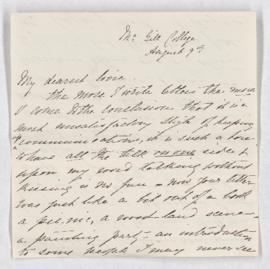 McGill College
August 9th
My dearest Louie.
the more I write letters the more
I come to the conclusion that it is a
most unsatisfactory style of keeping
communications, it is such a bore
to have all the talk on one side &
upon my word talking without
hearing is no fun - now your letter
was just like a bit out of a book
a picnic, a moonland scene -
a painting party - an introduction
to some people I may never see